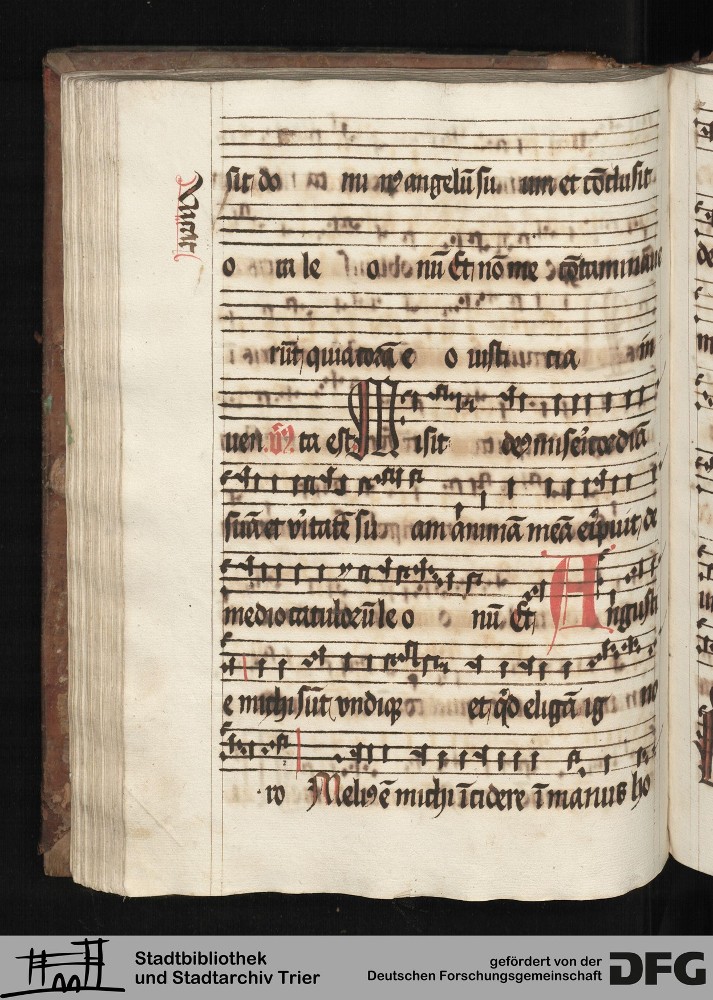 sit do mi nꝰ angelū su um et cōclusit
o ra le o nū Et nō me cōtaminaue
rūt quia corā e o iusti cia in
uen ta est Misit deꝰ misericordiā
suā et v'itatē su am animā meā eripuit de
medio catuloꝝ le o nū Et Angusti
e michi sūt vndiqꝫ et qͥd eligā ig no
ro Meliꝰ ē michi īcidere ī manus ho
Stadtbibliothek
und Stadtarchiv Trier
gefördert von der
Deutschen Forschungsgemeinschaft
DFG